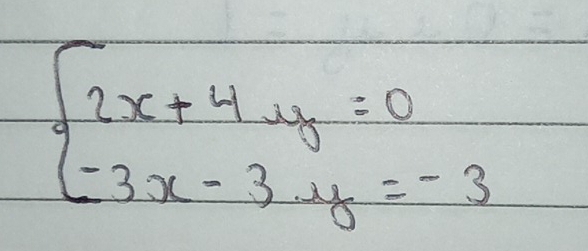 2x + 4y = 0
-3x - 3y = -3